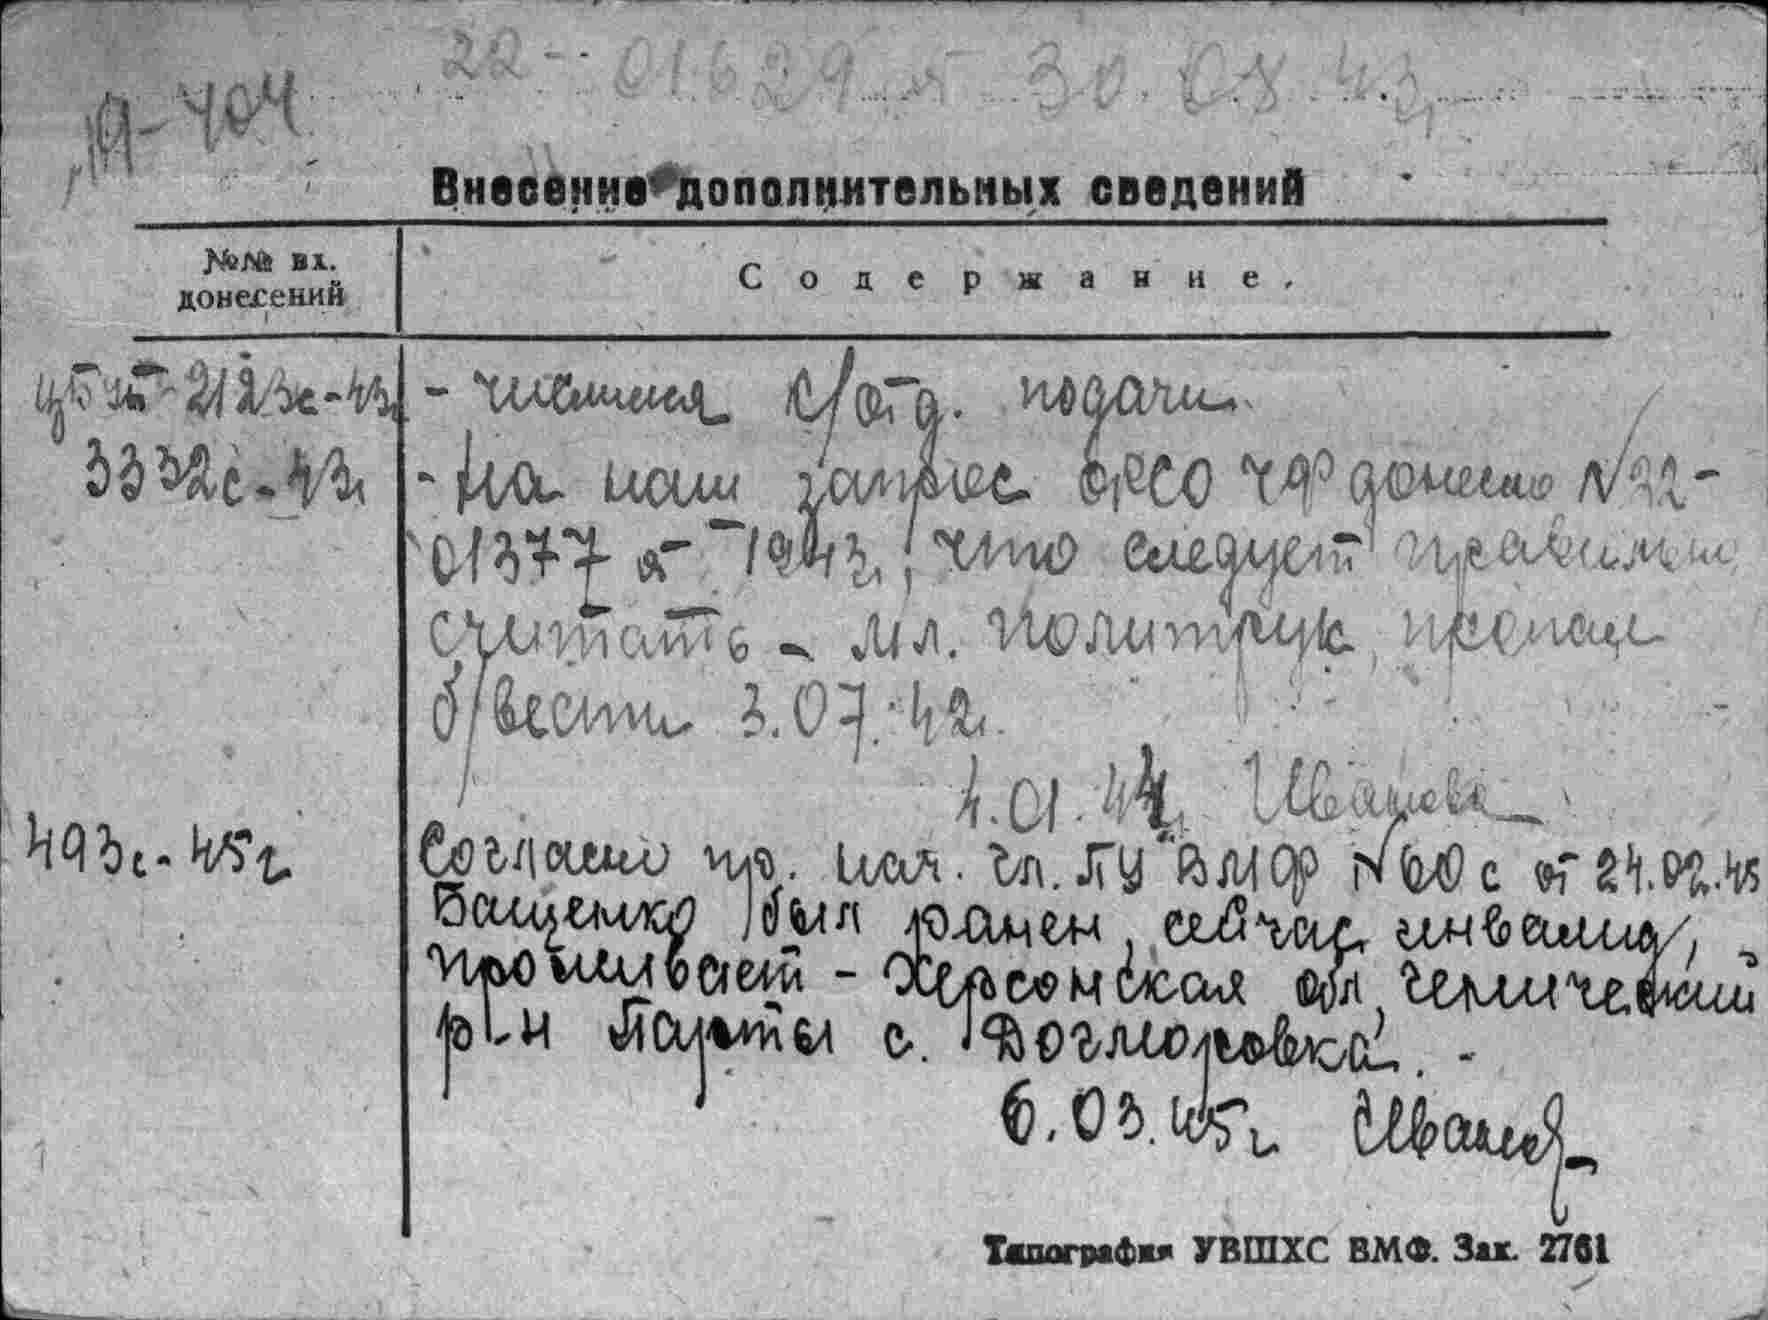 22-01629 от 30.08.43г
19-404
Внесение дополнительных сведений
№№ вх.
донесений
Содержание.
2123с-43г - числился к/отд. подачи
3332с-43г - На наш запрос ОРСО ЧФ донесло N22-
01377 от - 1943г, что следует правильно
считать - мл. политрук, пропал
б/вести 3.07.42г.
4.01.44г Иванова
493с-45г Согласно пр. нач. Гл. ПУ ВМФ N60с от 24.02.45
Бащенко был ранен, сейчас инвалид,
проживает - Херсонская обл, Генический
р-н Парты с. Догмаровка. -
6.03.45г Иванов
Типография УВШХС ВМФ. Зак. 2761